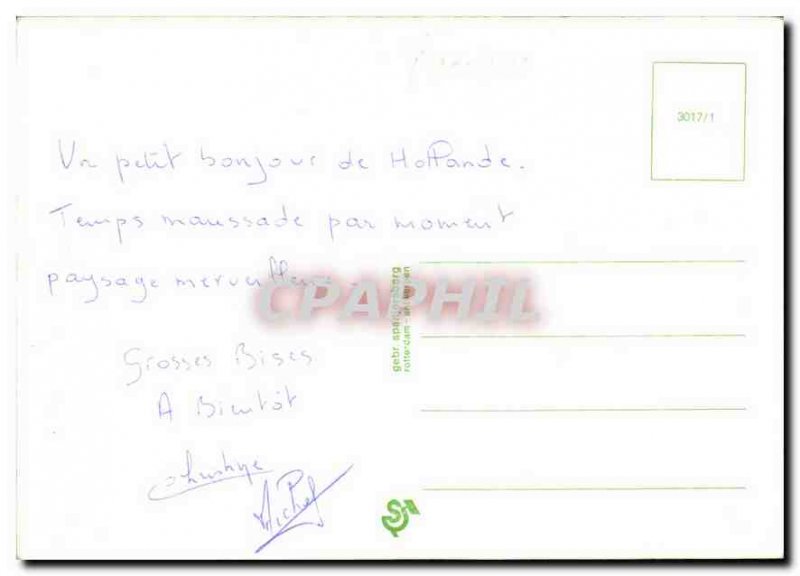 Un petit bonjour de Hollande.
Temps maussade par moment
paysage merveilleux.
Grosses Bises.
A Bientôt
Michel
3017/1
gebr. spanjersberg
rotterdam - antwerpen
CPAPHIL